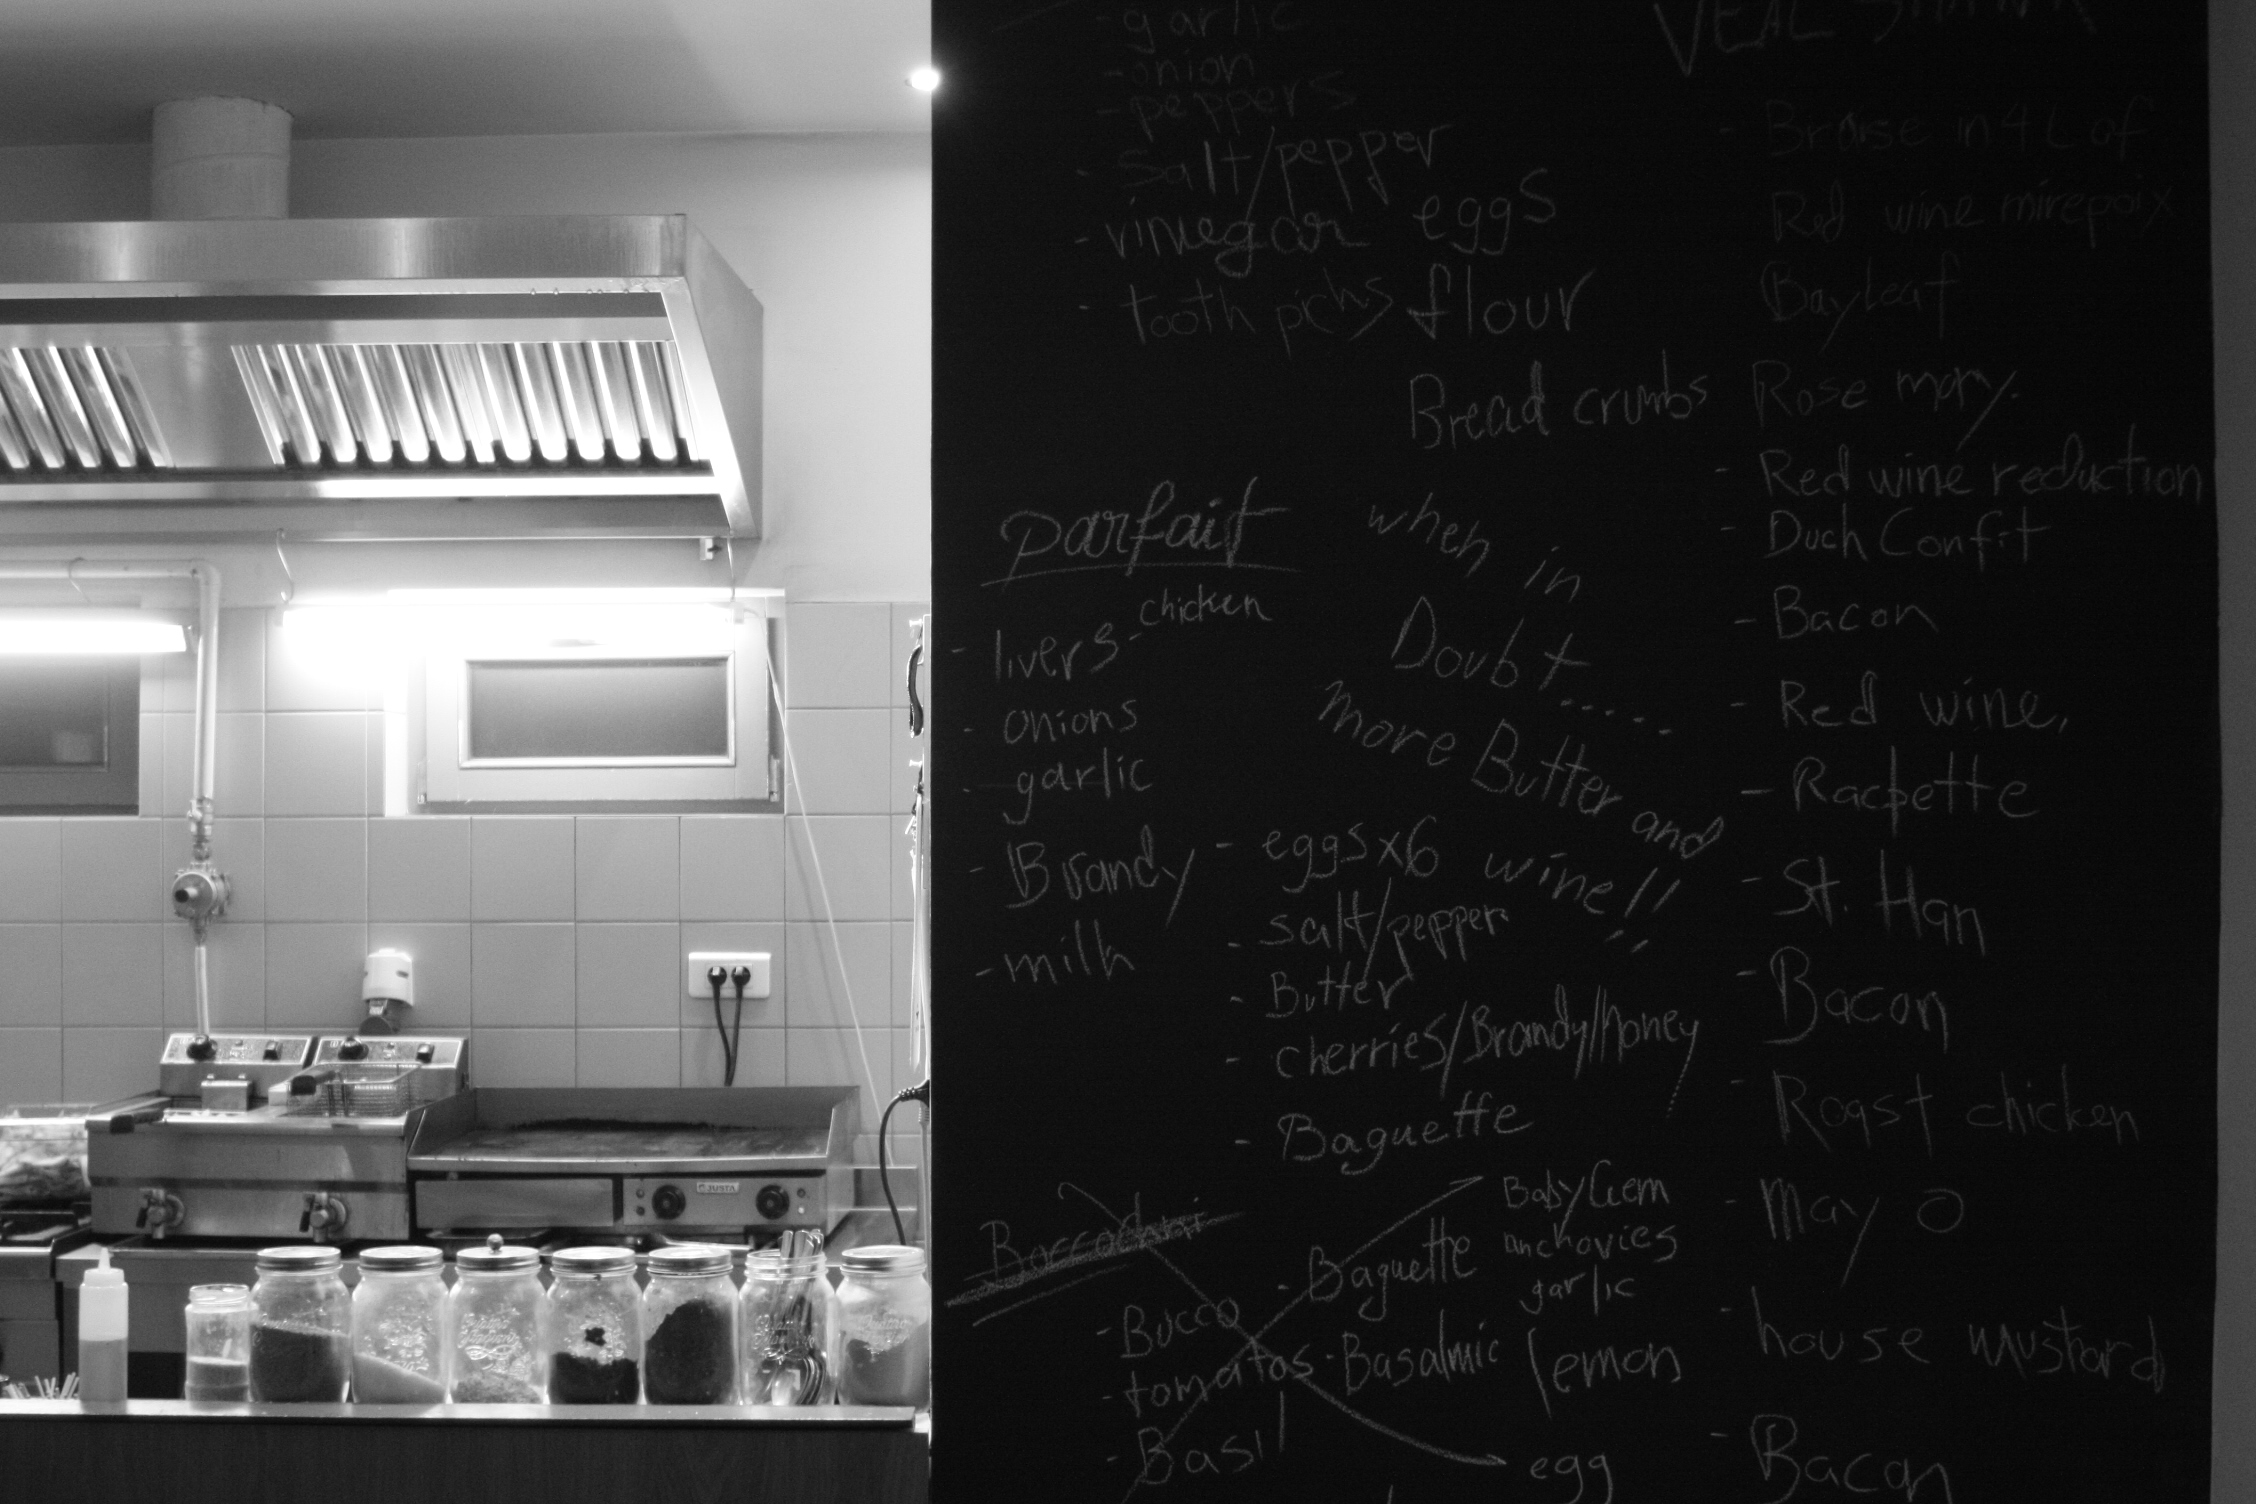 - garlic
- onion
- peppers
- Salt/pepper
- vinegar
- tooth picks
eggs
flour
Bread crumbs
parfait
- livers - chicken
- onions
- garlic
- Brandy
- milk
- eggs x6
- salt/pepper
- Butter
- cherries/Brandy/Honey
- Baguette
when in
Doubt......
more Butter and
wine!!
- Bocco
- tomatos
- Basil
- Baguette
- Basalmic
Baby Gem
anchovies
garlic
lemon
egg
VEAL
- Braise in 4 L of
Red wine mirepoix
Bayleaf
Rose mary.
- Red wine reduction
- Duck Confit
- Bacon
- Red wine,
- St. Han
- Bacon
- Roast chicken
- may O
- house mustard
- Bacon
JUSTA